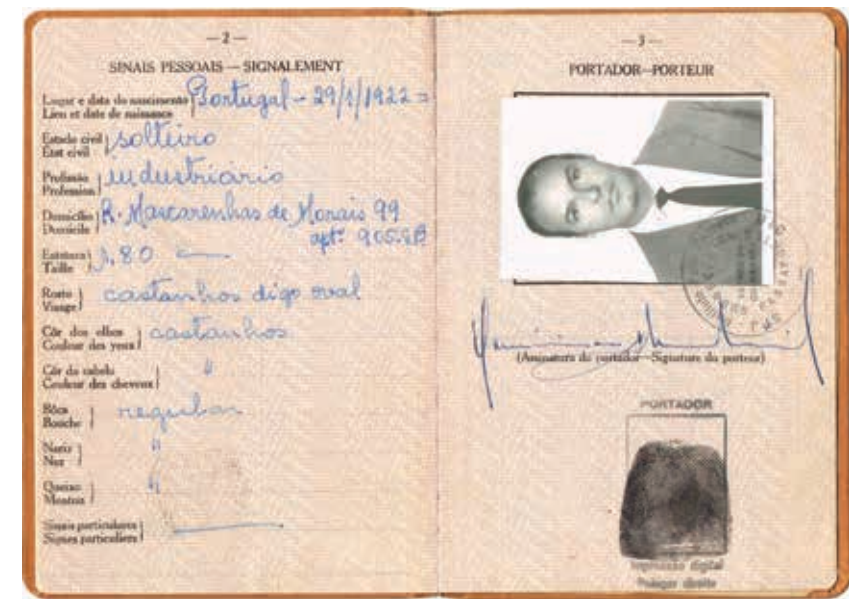 —2—
SINAIS PESSOAIS — SIGNALEMENT
Lugar e data do nascimento
Lieu et date de naissance
Portugal - 29/1/1922 =
Estado civil
État civil
solteiro
Profissão
Profession
industriário
Domicílio
Domicile
R. Mascarenhas de Morais 99
aptº 905.
Estatura
Taille
1.80
Rosto
Visage
castanhos digo oval
Côr dos olhos
Couleur des yeux
castanhos
Côr do cabelo
Couleur des cheveux
"
Bôca
Bouche
regular
Nariz
Nez
"
Queixo
Menton
"
Sinais particulares
Signes particuliers
—3—
PORTADOR—PORTEUR
(Assinatura do portador—Signature du porteur)
PORTADOR
Impressão digital
Polegar direito